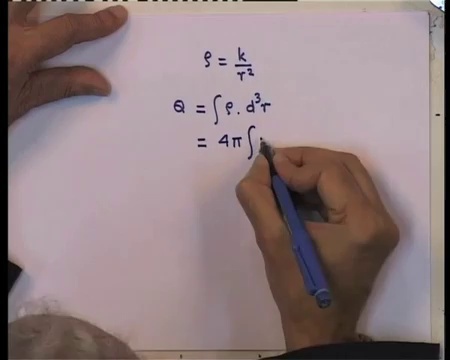 ρ = k/r²
Q = ∫ ρ . d³r
= 4π ∫